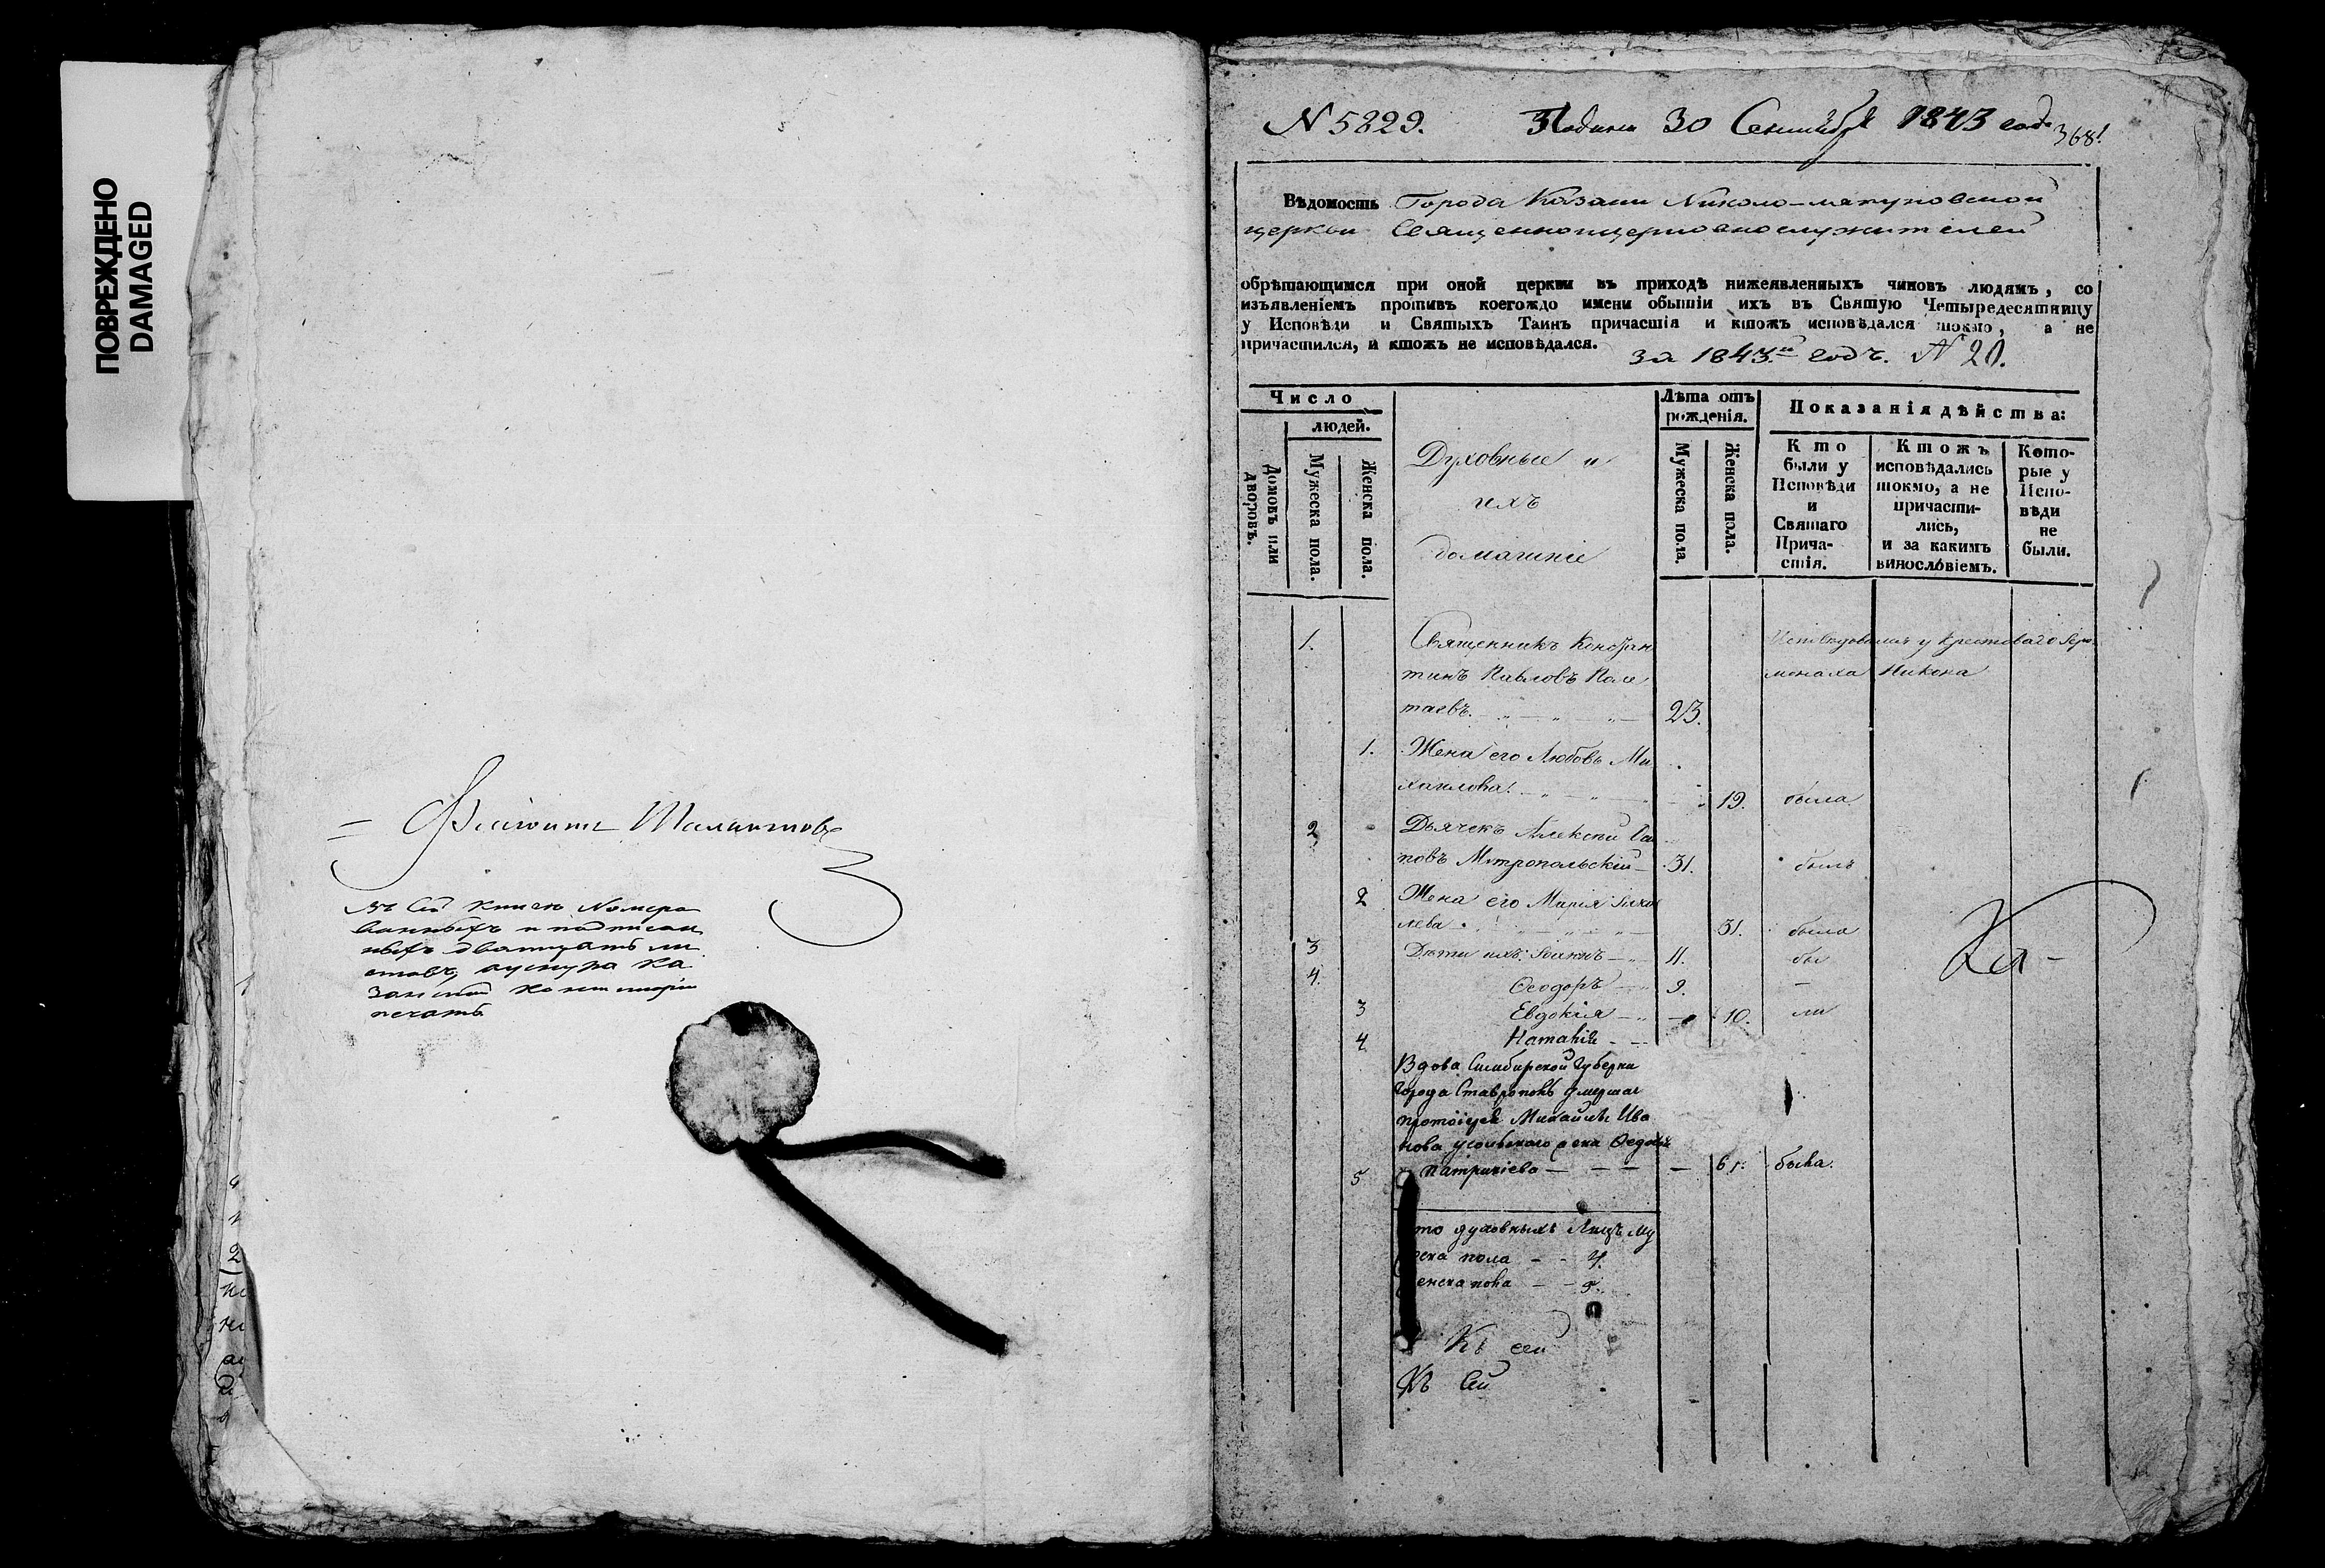 ПОВРЕЖДЕНО
DAMAGED
въ сей книгѣ номеро
ванныхъ и подписан
ныхъ дватцать ли
стовъ, у сшура Ка
занской консисторіи
печать
N 5829. 30 Сентября 1843 года
368
Вѣдомость Города Казани Николо-
церкви Священноцерковнослужителей
обрѣтающимся при оной церкви въ приходѣ нижеявленныхъ чиновъ людямъ, со
изъявленіемъ противъ коегождо имени обытіи ихъ въ Святую Четыредесятницу
у Исповѣди и Святыхъ Таинъ причастія и ктожъ исповѣдался токмо, а не
причастился, и ктожъ не исповѣдался.
за 1843й годъ. N 20.
Число
людей.
Домовъ или
дворовъ.
Мужеска пола.
Женска пола.
Духовные и
ихъ
домашніе
Лѣта отъ
рожденія.
Мужеска пола.
Женска пола.
Показанія дѣйства:
Кто
были у
Исповѣди
и
Святаго
Прича-
стія.
Ктожъ
исповѣдались
токмо, а не
причасти-
лись,
и за какимъ
винословіемъ.
Кото-
рые у
Испо-
вѣди
не
были.
1. Священникъ Констан
тинъ Павловъ Поле
таевъ. 23.
Исповѣдовался у Крестоваго Іеро
монаха Никона
1. Жена его Любовь Ми
хаилова. 19. была
2 Дьячекъ Алексѣй Оси
повъ Митропольскій 31. былъ
2 Жена его Марія Іаков
лева 31. была
3 Дѣти ихъ: Іоаннъ 11. бы
4. Ѳеодоръ 9. –
3 Евдокія 10. ли
4 Наталія
Вдова Симбирской Губерни
города Ставрополь умершаг
протоіерея Михаила Ива
нова жена Ѳедосья
5 Патрикіева 61. была.
то духовныхъ Лицъ му
ска пола – – 4.
енска пола – – 5.
Къ сей
Къ сей